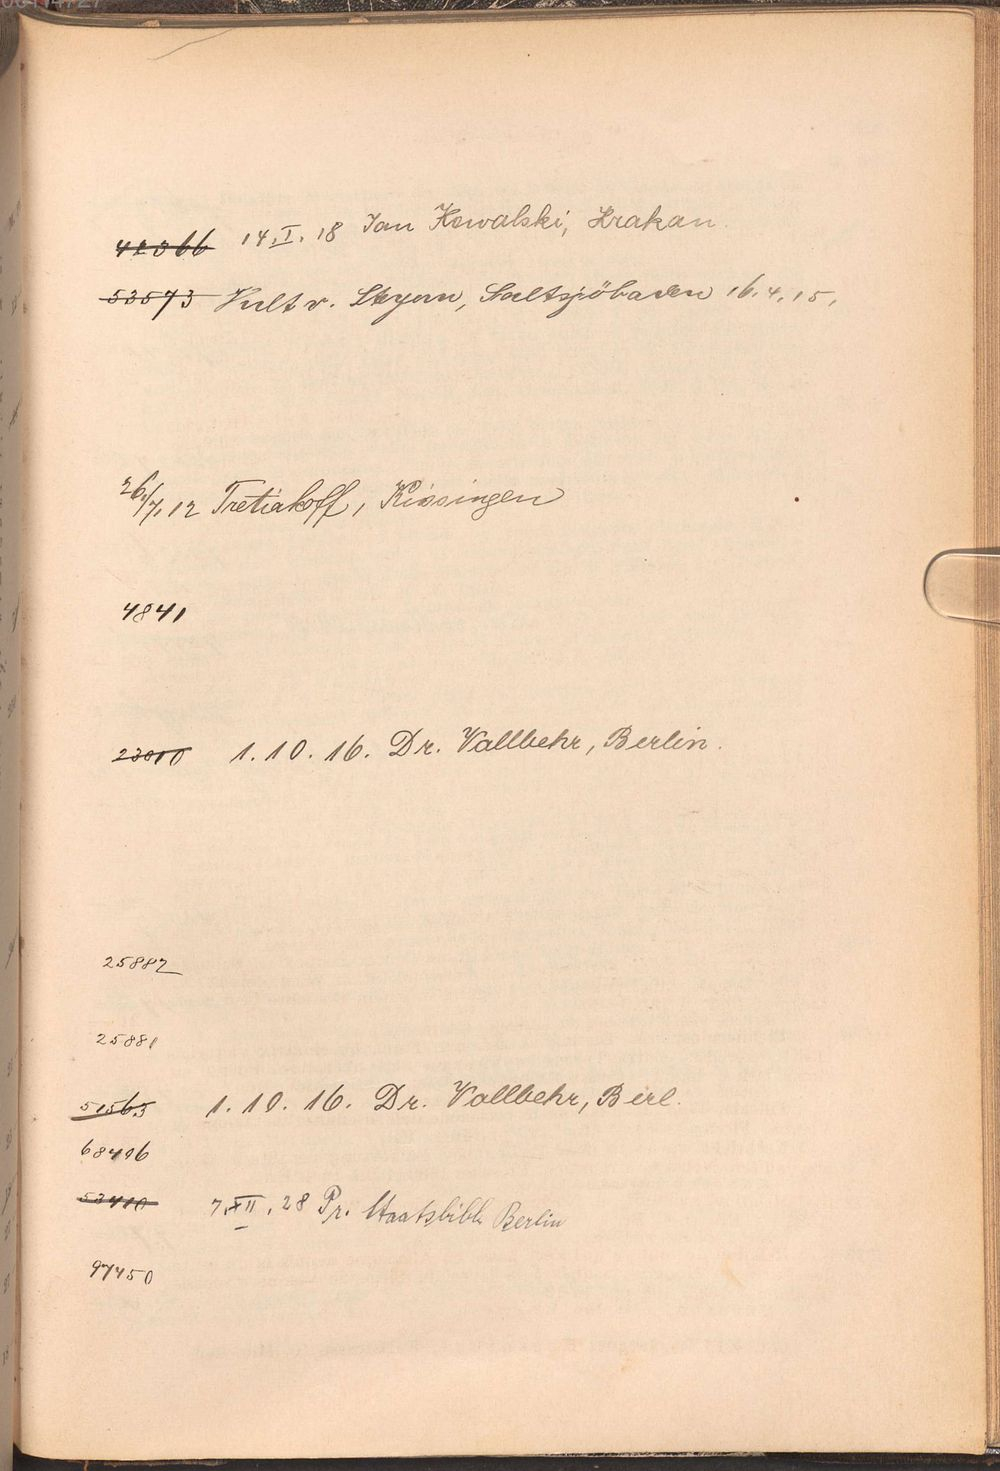 42366 14.I.18 Jan Kowalski, Krakau.
53573 Vult v. Steyern, Saltsjöbaden 16.4.15.
26/7.12 Tretiakoff, Kissingen
4841
23010 1.10.16. Dr. Vallbehr, Berlin.
25882
25881
51563 1.10.16. Dr. Vallbehr, Berl.
68406
53410 7.XII.28 Pr. Staatsbibl. Berlin
97450